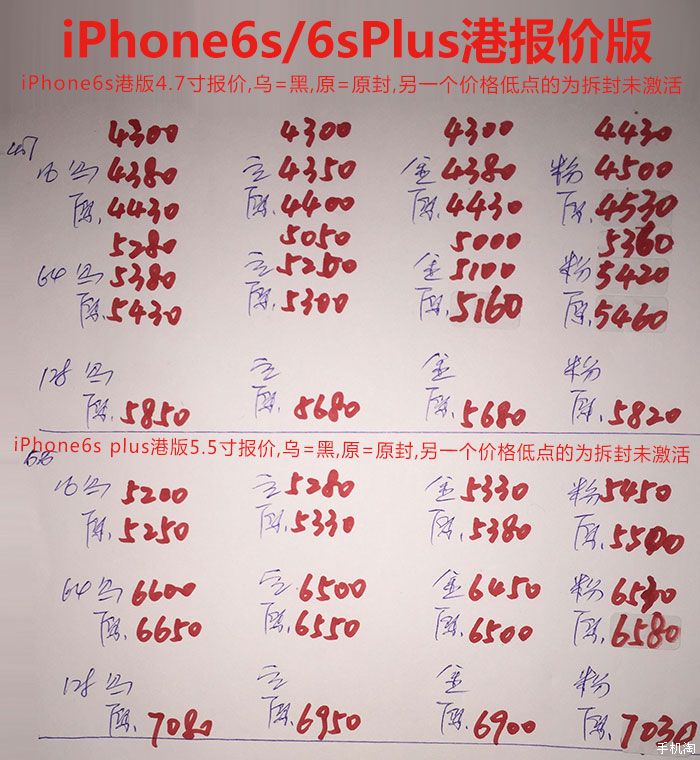 iPhone6s/6sPlus港报价版
iPhone6s港版4.7寸报价,乌=黑,原=原封,另一个价格低点的为拆封未激活
4300 4300 4300 4430
4.7
16 乌 4380 4350 金 4380 粉 4500
原. 4430 原. 4400 原. 4430 原. 4530
5280 5050 5000 5360
64 乌 5380 5250 金 5100 粉 5420
原. 5430 原. 5300 原. 5160 原. 5460
128 乌 金 粉
原. 5850 原. 5680 原. 5680 原. 5820
iPhone6s plus港版5.5寸报价,乌=黑,原=原封,另一个价格低点的为拆封未激活
5.5
16 乌 5200 5280 金 5330 粉 5450
原. 5250 原. 5330 原. 5380 原. 5500
64 乌 6600 6500 金 6450 粉 6530
原. 6650 原. 6550 原. 6500 原. 6580
128 乌 金 粉
原. 7080 原. 6950 原. 6900 原. 7030
手机淘